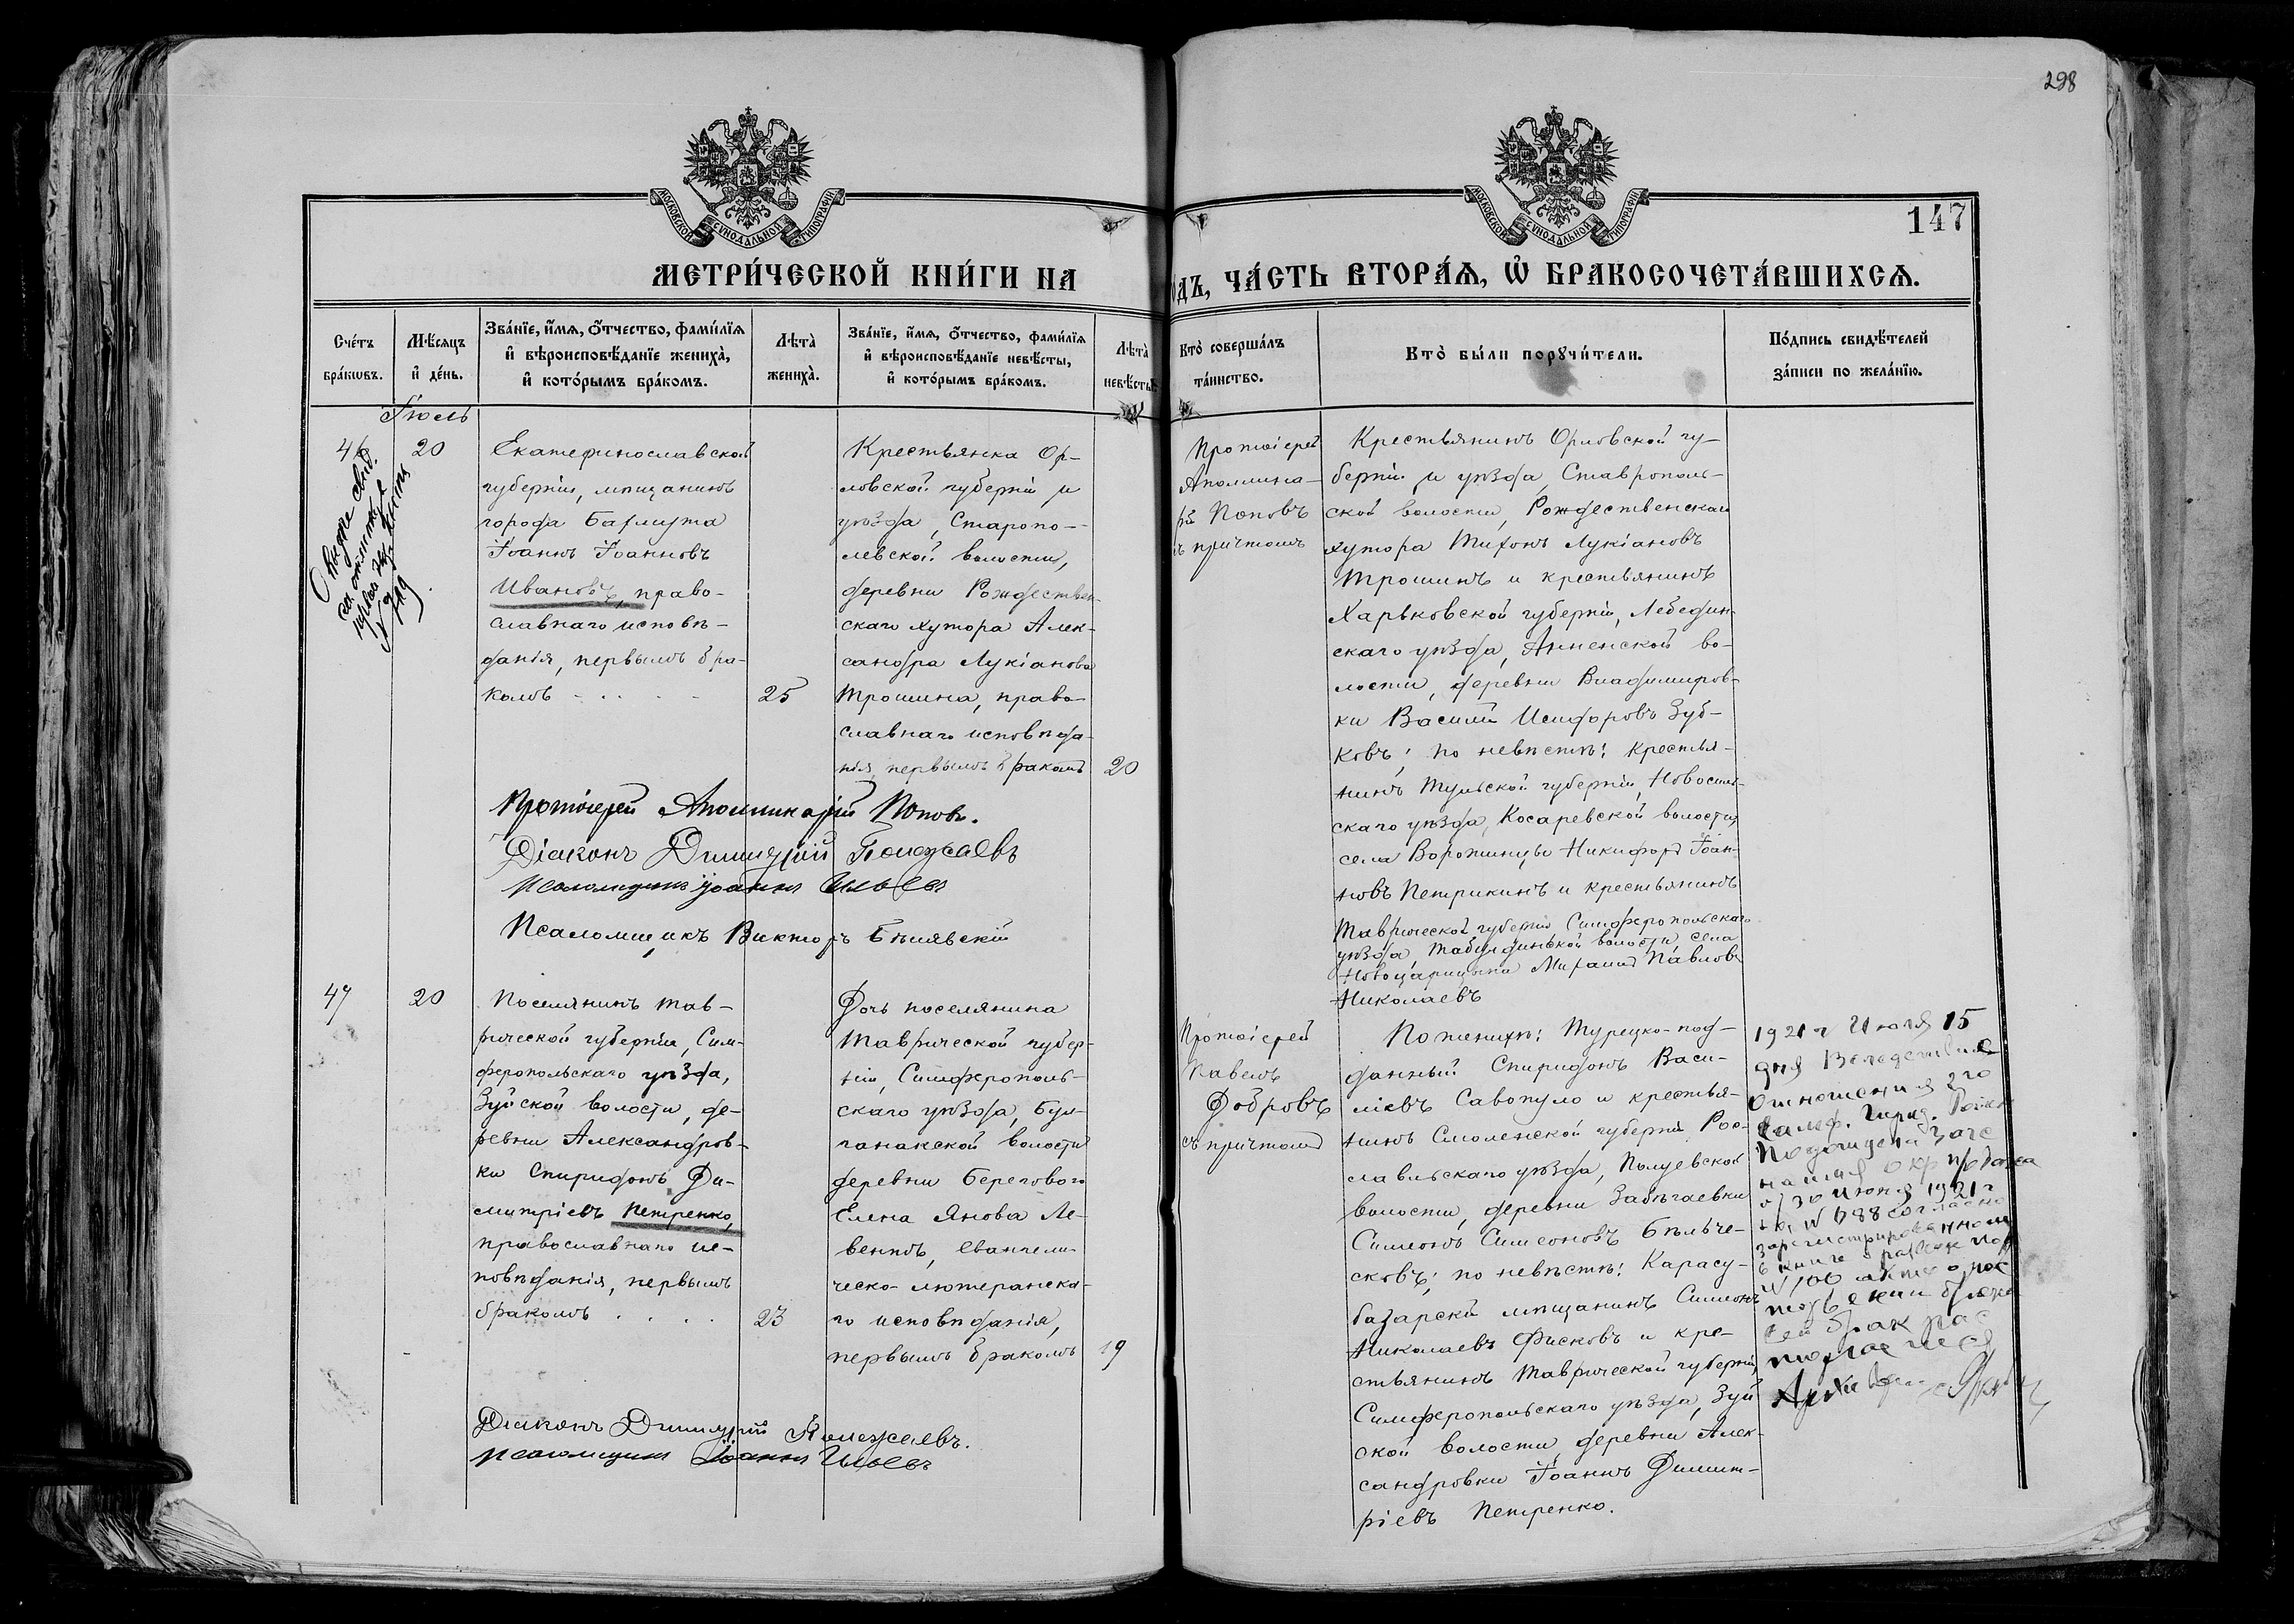 298
147
МОСКОВСКОЙ СУНОДАЛЬНОЙ ТИПОГРАФІИ
МОСКОВСКОЙ СУНОДАЛЬНОЙ ТИПОГРАФІИ
МЕТРИ́ЧЕСКОЙ КНИ́ГИ НА
ОДЪ, ЧА́СТЬ ВТОРА́Я, Ѽ БРАКОСОЧЕТА́ВШИХСЯ.
Сче́тъ
бра́ковъ.
Мѣ́сяцъ
и де́нь.
Зва́нїе, и́мя, о́тчество, фами́лїя
и вѣроисповѣ́данїе жениха̀,
и кото́рымъ бра́комъ.
Лѣта̀
жениха̀.
Зва́нїе, и́мя, о́тчество, фами́лїя
и вѣроисповѣ́данїе невѣ́сты,
и кото́рымъ бра́комъ.
Лѣта̀
невѣ́сты.
Кто̀ соверша́лъ
та́инство.
Кто̀ бы́ли порꙋчи́тели.
По́дпись свидѣ́телей
за́писи по жела́нїю.
Іюль
46
20
Екатеринославской
губерніи, мѣщанинъ
города Бахмута
Іоаннъ Іоанновъ
Ивановъ, право-
славнаго исповѣ-
данія, первымъ бра-
комъ - . . . -
25
Крестьянка Ор-
ловской губерніи и
уѣзда, Старопо-
левской волости,
деревни Рождествен-
скаго хутора Алек-
сандра Лукіанова
Трошина, право-
славнаго исповѣда-
нія, первымъ бракомъ
20
Протоіерей
Аполлина-
рій Поповъ
съ причтомъ
Крестьянинъ Орловской гу-
берніи и уѣзда, Ставрополь-
ской волости, Рождественскаго
хутора Тихонъ Лукіановъ
Трошинъ и крестьянинъ
Харьковской губерніи, Лебедин-
скаго уѣзда, Анненской во-
лости, деревни Владимиров-
ки Василій Исидоровъ Зуб-
ковъ; по невѣстѣ: крестья-
нинъ Тульской губерніи, Новосиль-
скаго уѣзда, Косаревской волости,
села Воротынцы Никифоръ Іоан-
новъ Петрикинъ и крестьянинъ
Таврической губерніи Симферопольскаго
уѣзда, волости, села
Новоцарицына Михаилъ Павловъ
Николаевъ
Протоіерей Аполлинарій Поповъ.
Діаконъ Димитрій Полежаевъ
Псаломщикъ Іоаннъ Ильевъ
Псаломщикъ Викторъ Бѣлявскій
47
20
Поселянинъ Тав-
рической губерніи, Сим-
феропольскаго уѣзда,
Зуйской волости, де-
ревни Александров-
ки Спиридонъ Ди-
митріевъ Петренко,
православнаго ис-
повѣданія, первымъ
бракомъ . . . .
23
Дочь поселянина
Таврической губер-
ніи, Симферополь-
скаго уѣзда, Бул-
ганакской волости
деревни Берегового
Елена Янова Ле-
вентъ, евангели-
ческо-лютеранска-
го исповѣданія,
первымъ бракомъ
19
Протоіерей
Павелъ
Добровъ
съ причтомъ
По женихѣ: Турецко-под-
данный Спиридонъ Васи-
ліевъ Савопуло и крестья-
нинъ Смоленской губерніи, Рос-
лавльскаго уѣзда, Полуевской
волости, деревни Забѣгаевки
Симеонъ Симеоновъ Бѣльче-
сковъ; по невѣстѣ: Карасу-
базарскій мѣщанинъ Симеонъ
Николаевъ Фисковъ и кре-
стьянинъ Таврической губерніи,
Симферопольскаго уѣзда, Зуй-
ской волости, деревни Алек-
сандровки Іоаннъ Димит-
ріевъ Петренко.
1921 г Июля 15
дня Вследствие
отношения 2го
30 июня 1921 г
за № 688 согласно
в книге о браках
№ 106
сей брак рас
торгается
Діаконъ Димитрій Полежаевъ.
Псаломщикъ Іоаннъ Ильевъ